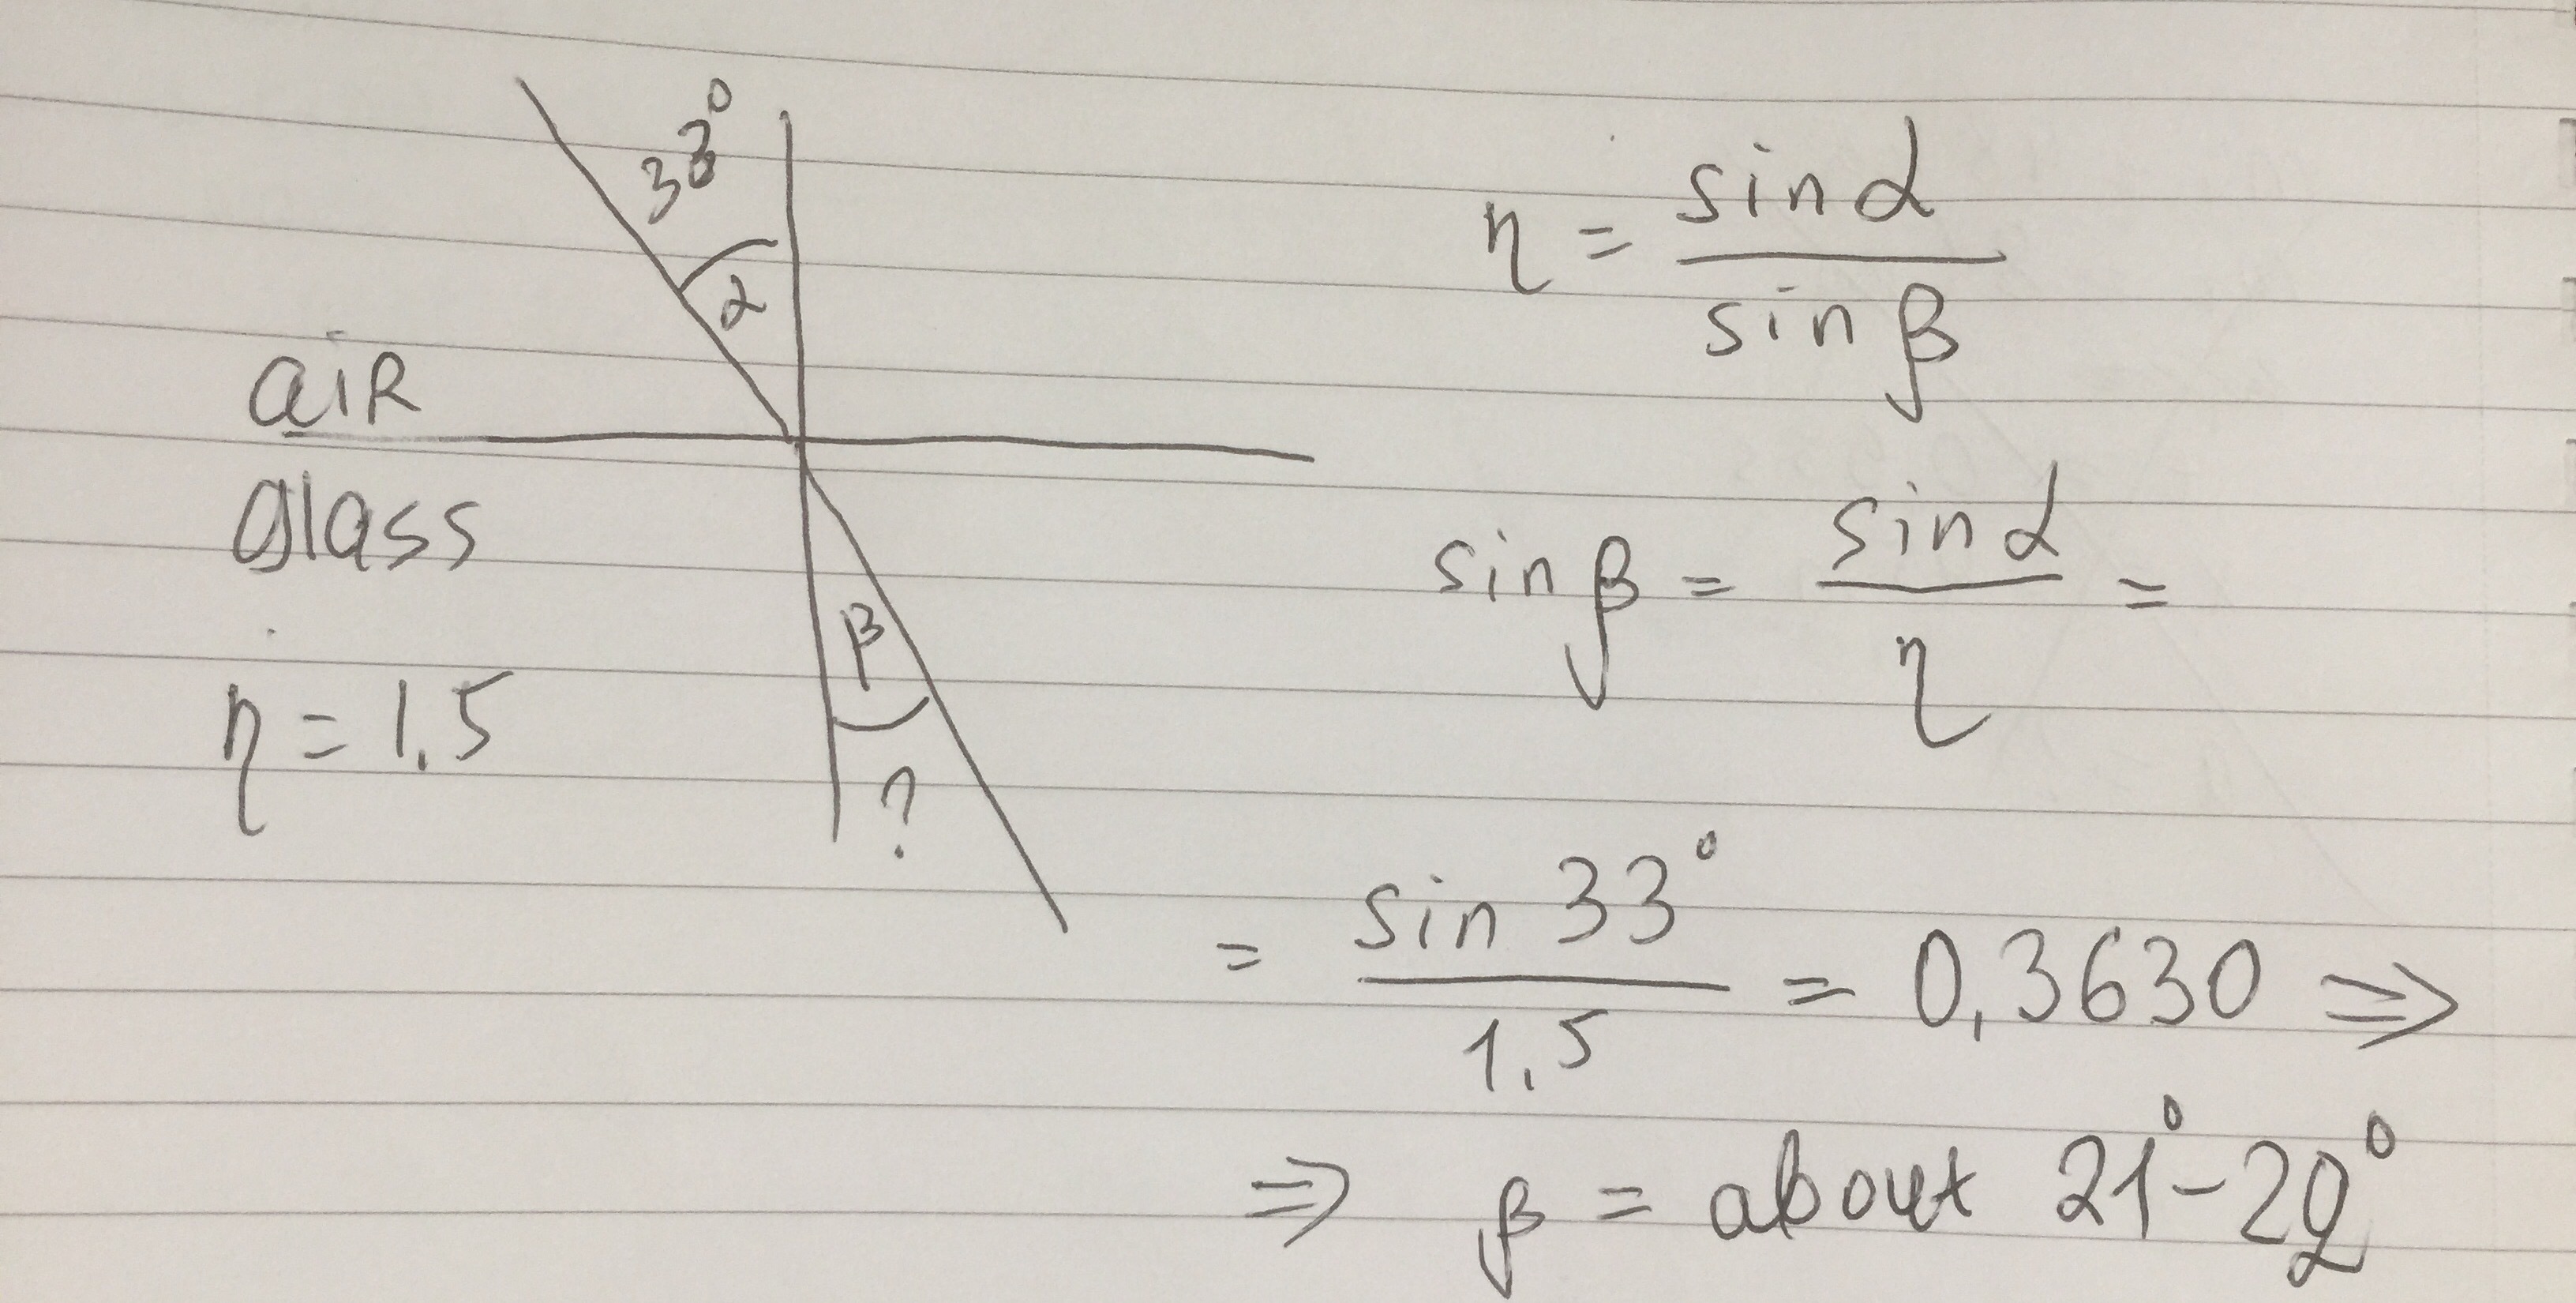 33°
α
aiR
glass
η = 1.5
β
?
η = sin α / sin β
sin β = sin α / η =
= sin 33° / 1.5 = 0,3630 ⇒
⇒ β = about 21° - 22°